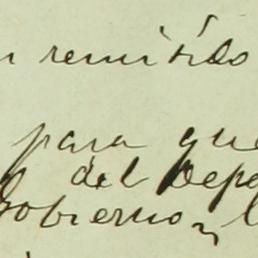 n remitido
para que
del Depa
Gobierno,